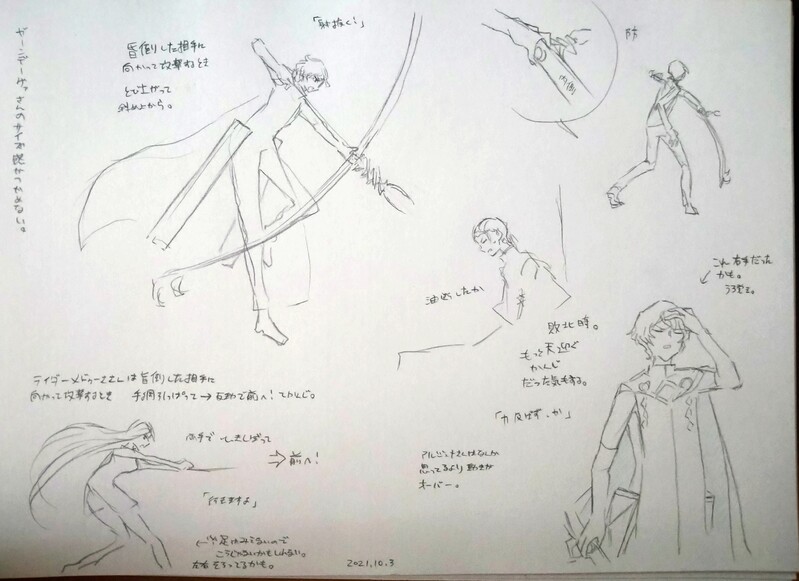 ガーンデーヴァさんのサイズ感がつかめない。
「射抜く!」
皆倒した相手に
向かって攻撃するとき
とび上がって
斜め上から。
内側
防
油断したか
敗北時。
もっと天仰ぐ
かんじ
だった気もする。
これ右手だった
かも。
うろ覚え。
ライダーメドゥーサさんは皆倒した相手に
向かって攻撃するとき 手綱引っぱって→反動で前へ!てかんじ。
両手で
ひっぱって
⇒前へ!
「行きますよ」
足はみえないので
こうじゃないかもしれない。
左右
かも。
「力及ばず、か」
アルジュナさんはなんか
思ってるより動きが
オーバー。
2021.10.3